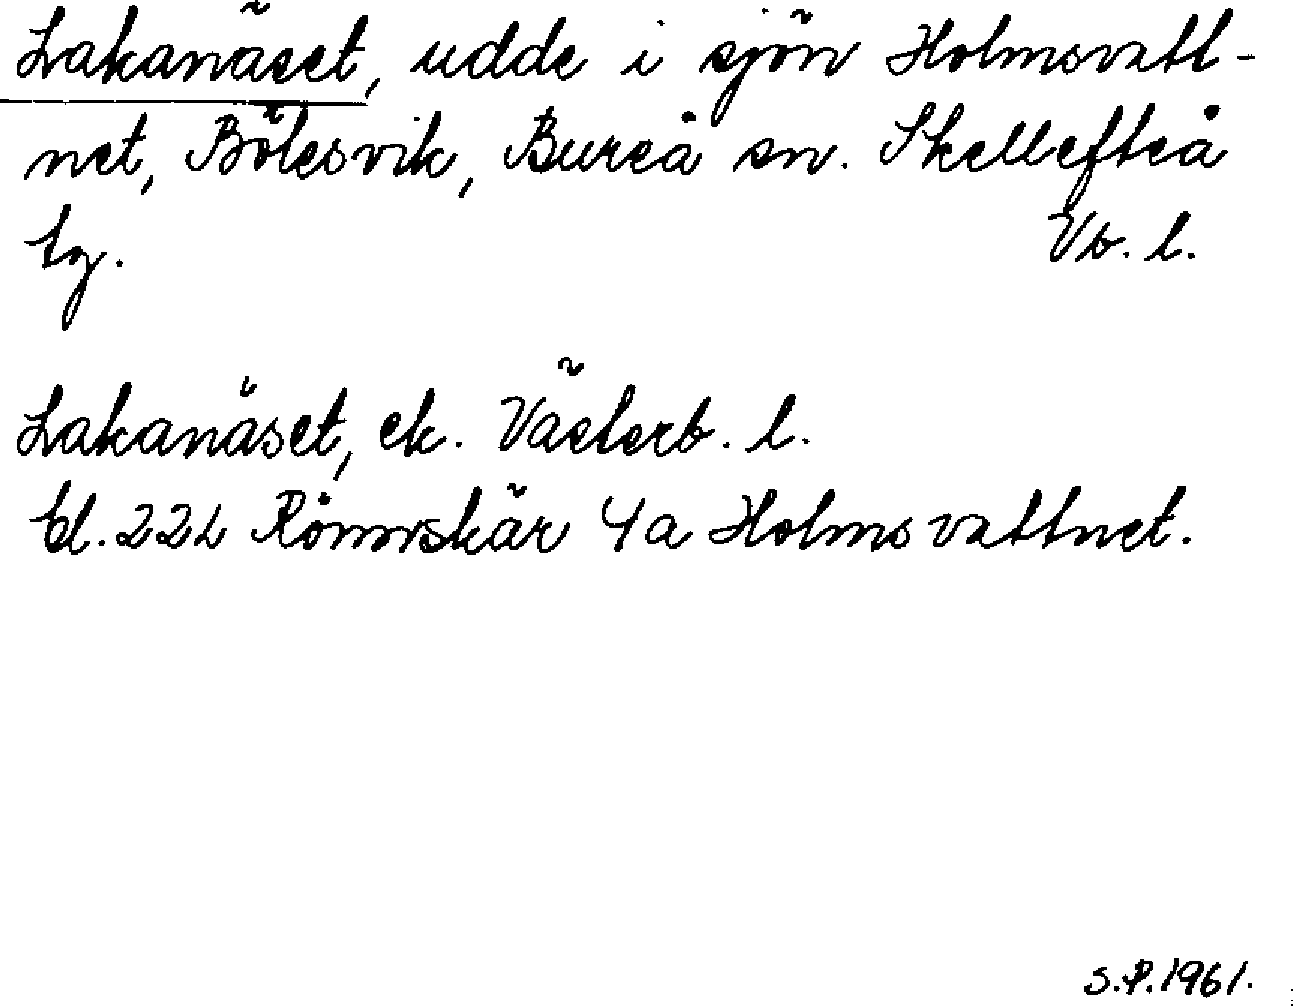 Lakanäset, udde i sjön Holmsvatt-
net, Bölesvik, Bureå sn. Skellefteå
tg. Vb. l.
Lakanäset, ek. Västerb. l.
bl. 22L Rönnskär 4a Holmsvattnet.
S.P. 1961.